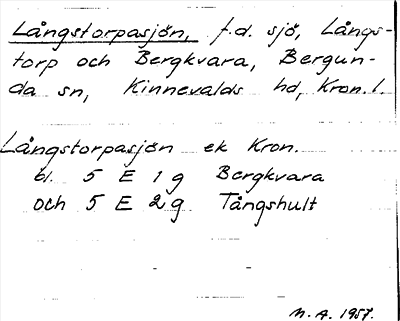 Långstorpasjön, f.d. sjö, Långs-
torp och Bergkvara, Bergun-
da sn, Kinnevalds hd, Kron. l.
Långstorpasjön ek Kron.
bl. 5 E 1 g Bergkvara
och 5 E 2 g Tångshult
N. A. 1957.